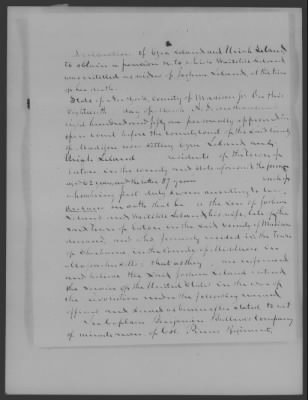 Declaration of Ezra Leland and Uriah Leland
to obtain a pension to which Waitstile Leland
was entitled as widow of Joshua Leland, at the time
of her death.
State of New York, County of Madison ss. On this
Eighteenth day of A.D. one thousand
eight hundred and fifty one personally appeared in
open court before the county court of the said county
of Madison now sitting Ezra Leland and
Uriah Leland residents of the town of
Eaton in the county and state aforesaid the former
aged 62 years, and the latter 57 years
who being first duly sworn according to law,
declare on oath that he is the son of Joshua
Leland and Waitstile Leland his wife, late of the
said town of Eaton in the said county of Madison
deceased, and who formerly resided in the town
of Sherburne in the County of Middlesex in
Massachusetts. That as they are informed
and believe the said Joshua Leland entered
the service of the United States in the war of
the revolution under the following named
officers and served as hereinafter stated to wit
In Captain Benjamin Bullard's Company
of minute men of Col. Pierce Regiment,